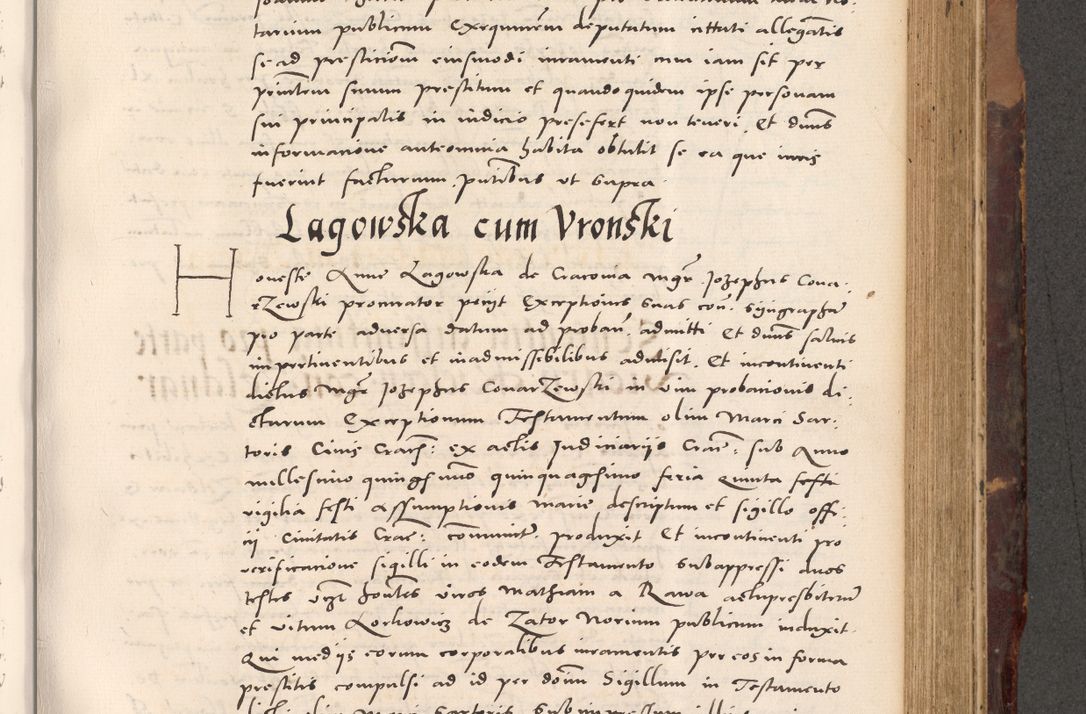 tarium publicum Exequutem deputatum ittuti allegatis
se ad prestitionem eiusmodi iuramenti cum iam sit per
printem suum prestitum et quandoquidem ipse personam
sui principalis in iudicio presefert non teneri. Et dnus
informatione anteomnia habita obtulit se ea que iuris
fuerint facturum. putibus ut supra
Lagowska cum Vronski
Honeste Anne Lagowska de Cracovia Mgr. Jozephus Covar
rzewski procurator petyt Exceptiones suas con. Syngrapha
pro parte adversa datum ad proban. admitti Et dnus salvis
impertinentibus et inadmissibilibus admisit. Et incontinenti
dictus Mgr Jozephus Covarzewski in vim probationis di-
ctarum Exceptionum Testamentum olim Marci Sar-
toris Civis Crac: ex actis Judiciariis Crac: sub Anno
millesimo quingesimo quinquagesimo feria Quinta festi
vigilia festi Assumptionis Marie descriptum et sigillo offi-
cij Civitatis Crac: communit. produxit Et incontinenti pro
verificatione sigilli in eodem Testamento subappressi duos
testes viros Mathiam a Rawa
et vitum Rorkowicz de Zator Notrium publicum induxit.
Qui medijs eorum corporalibus iuramentis per eos in forma
prestitis compulsi ad id per dnum Sigillum in Testamento